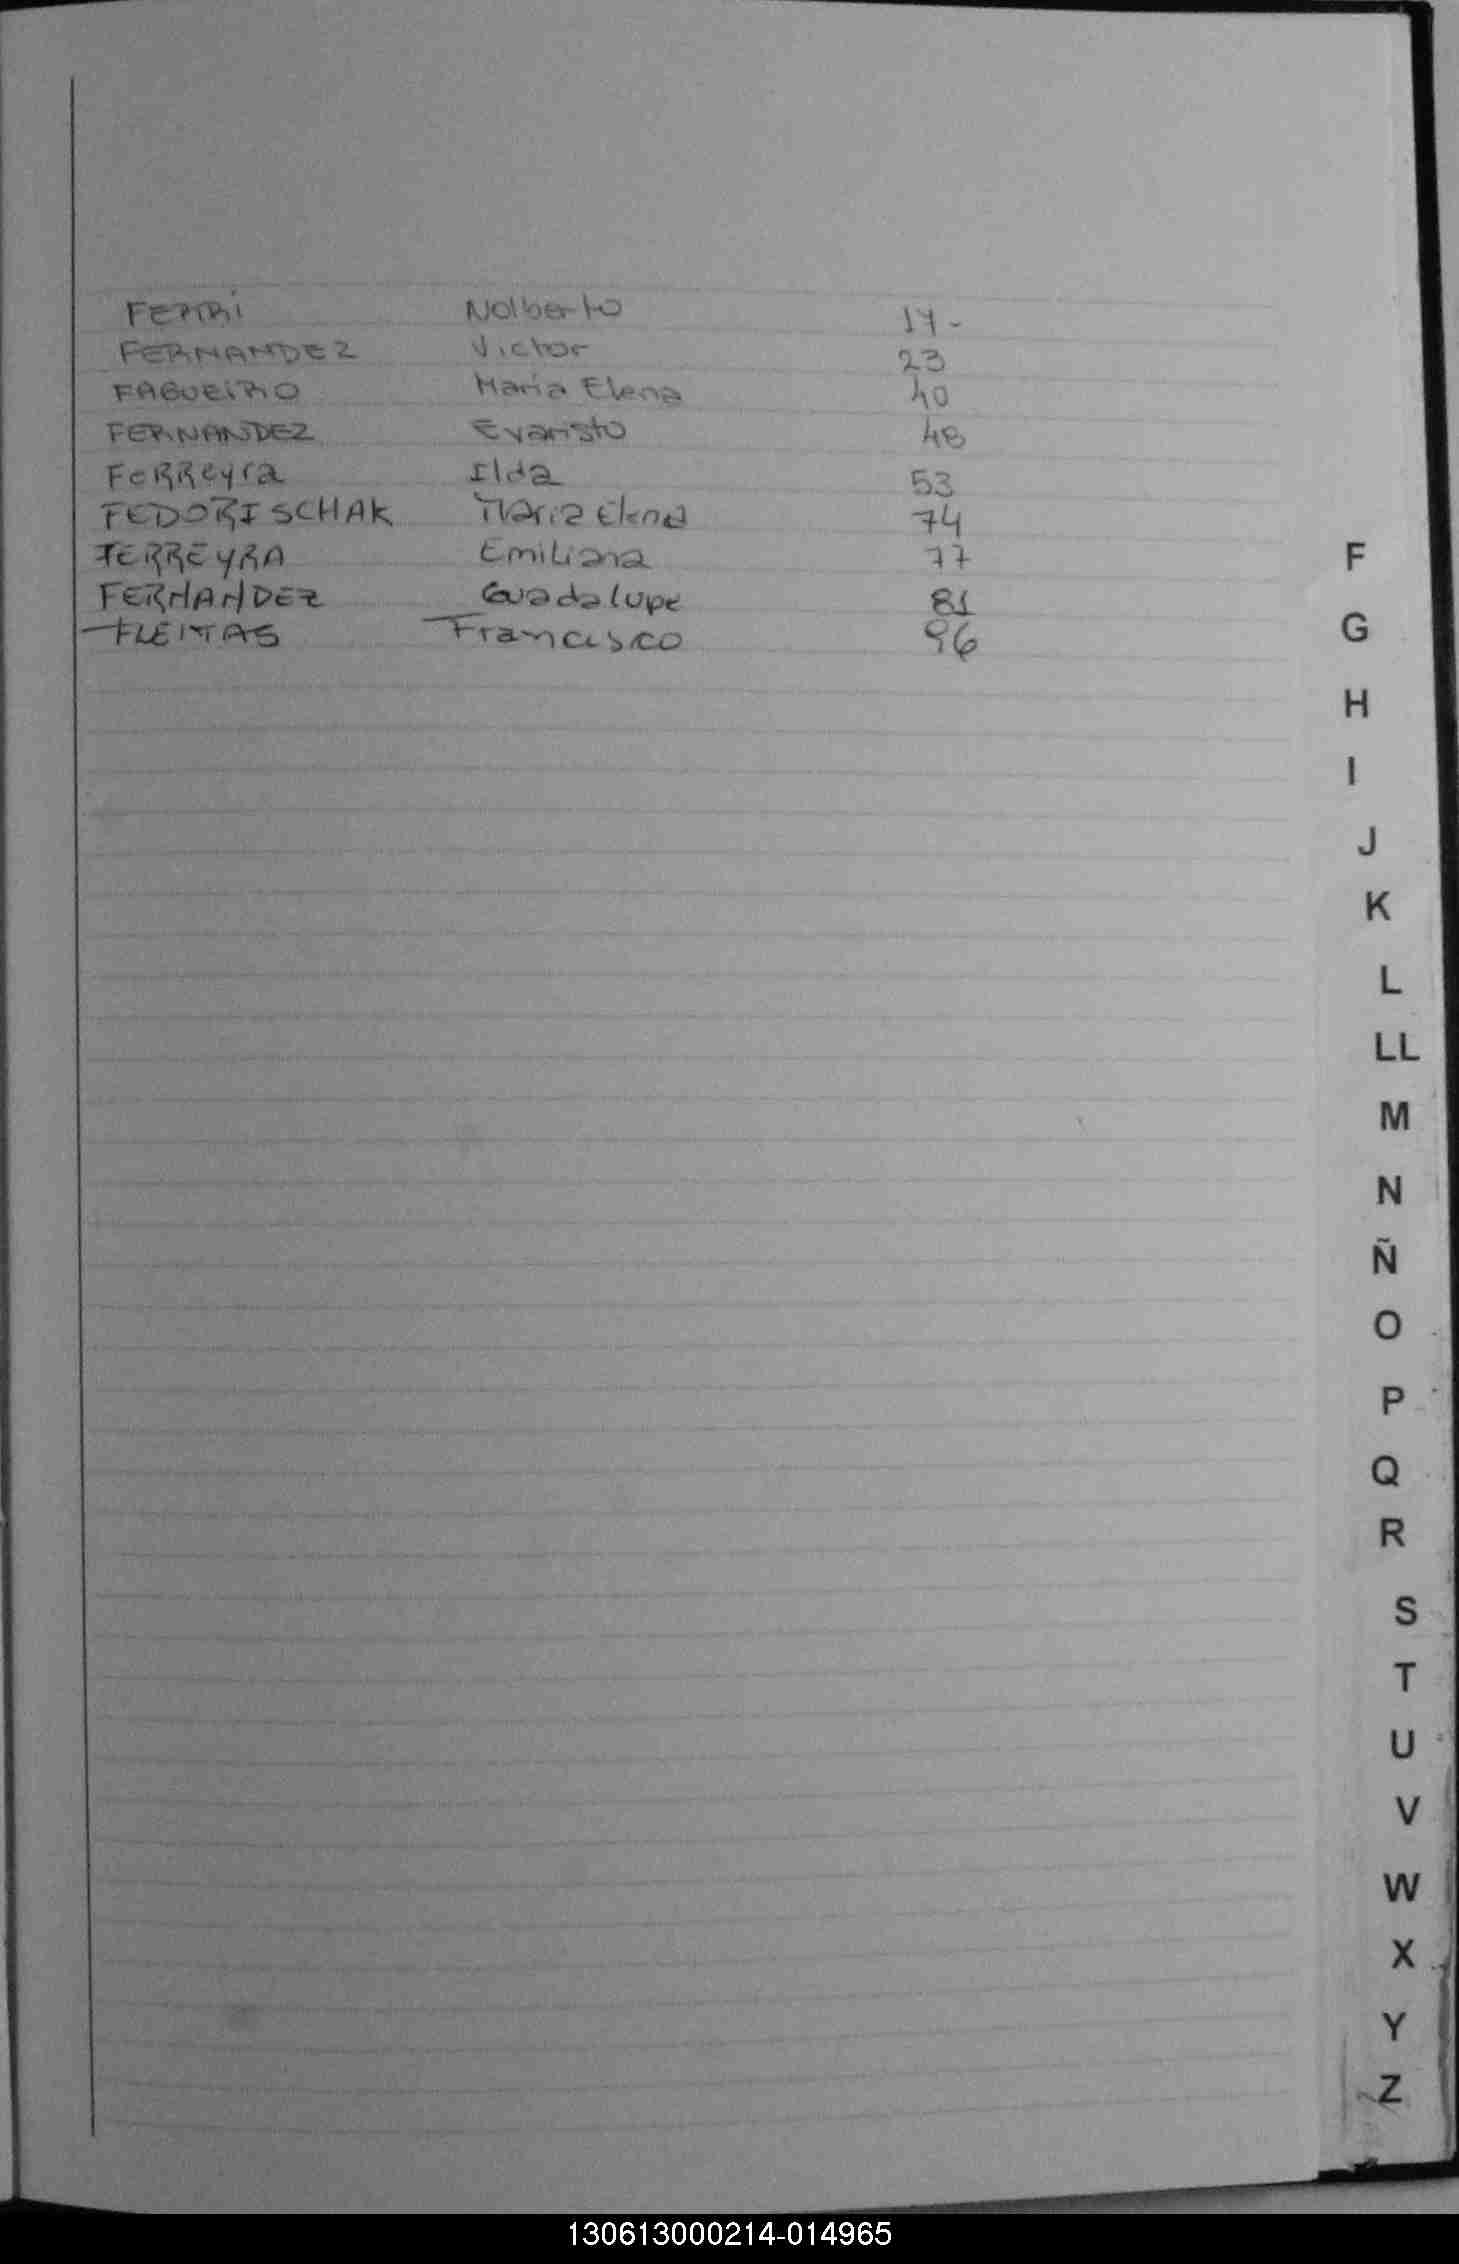 FERRI Nolberto 14-
FERNANDEZ Victor 23
FAGUEIRO Maria Elena 40
FERNANDEZ Evaristo 48
FeRReyra Ilda 53
FEDORISCHAK Maria Elena 74
FERREYRA Emiliana 77
FERNANDEZ Guadalupe 81
FLEITAS Francisco 96
F
G
H
I
J
K
L
LL
M
N
Ñ
O
P
Q
R
S
T
U
V
W
X
Y
Z
130613000214-014965